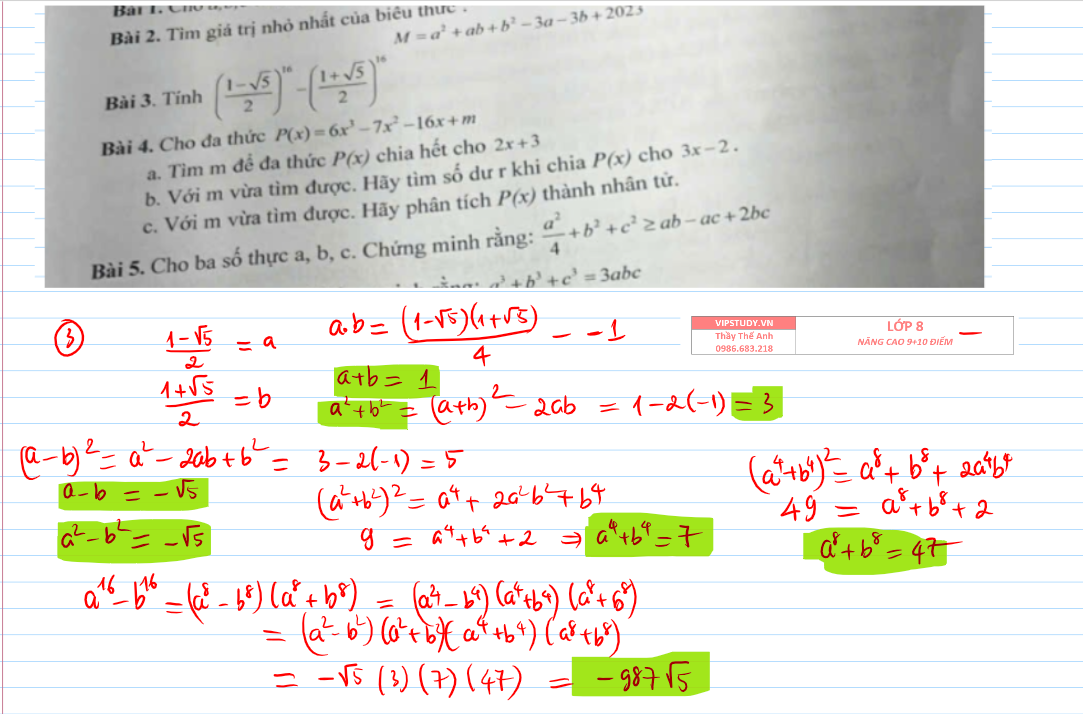 Bài 1. Cho
Bài 2. Tìm giá trị nhỏ nhất của biểu thức:
M = a² + ab + b² − 3a − 3b + 2023
Bài 3. Tính ((1−√5)/2)^16 − ((1+√5)/2)^16
Bài 4. Cho đa thức P(x) = 6x³ − 7x² − 16x + m
a. Tìm m để đa thức P(x) chia hết cho 2x+3
b. Với m vừa tìm được. Hãy tìm số dư r khi chia P(x) cho 3x−2.
c. Với m vừa tìm được. Hãy phân tích P(x) thành nhân tử.
Bài 5. Cho ba số thực a, b, c. Chứng minh rằng: a²/4 + b² + c² ≥ ab − ac + 2bc
a³ + b³ + c³ = 3abc
③ (1−√5)/2 = a
a.b = (1−√5)(1+√5)/4 = −1
VIPSTUDY.VN
Thầy Thế Anh
0986.683.218
LỚP 8
NÂNG CAO 9+10 ĐIỂM
(1+√5)/2 = b
a+b = 1
a²+b² = (a+b)² − 2ab = 1−2(−1) = 3
(a−b)² = a² − 2ab + b² = 3−2(−1) = 5
a−b = −√5
a²−b² = −√5
(a²+b²)² = a⁴ + 2a²b² + b⁴
9 = a⁴+b⁴+2 ⇒ a⁴+b⁴ = 7
(a⁴+b⁴)² = a⁸ + b⁸ + 2a⁴b⁴
49 = a⁸+b⁸+2
a⁸+b⁸ = 47
a^16 − b^16 = (a⁸−b⁸)(a⁸+b⁸) = (a⁴−b⁴)(a⁴+b⁴)(a⁸+b⁸)
= (a²−b²)(a²+b²)(a⁴+b⁴)(a⁸+b⁸)
= −√5 (3)(7)(47) = −987√5